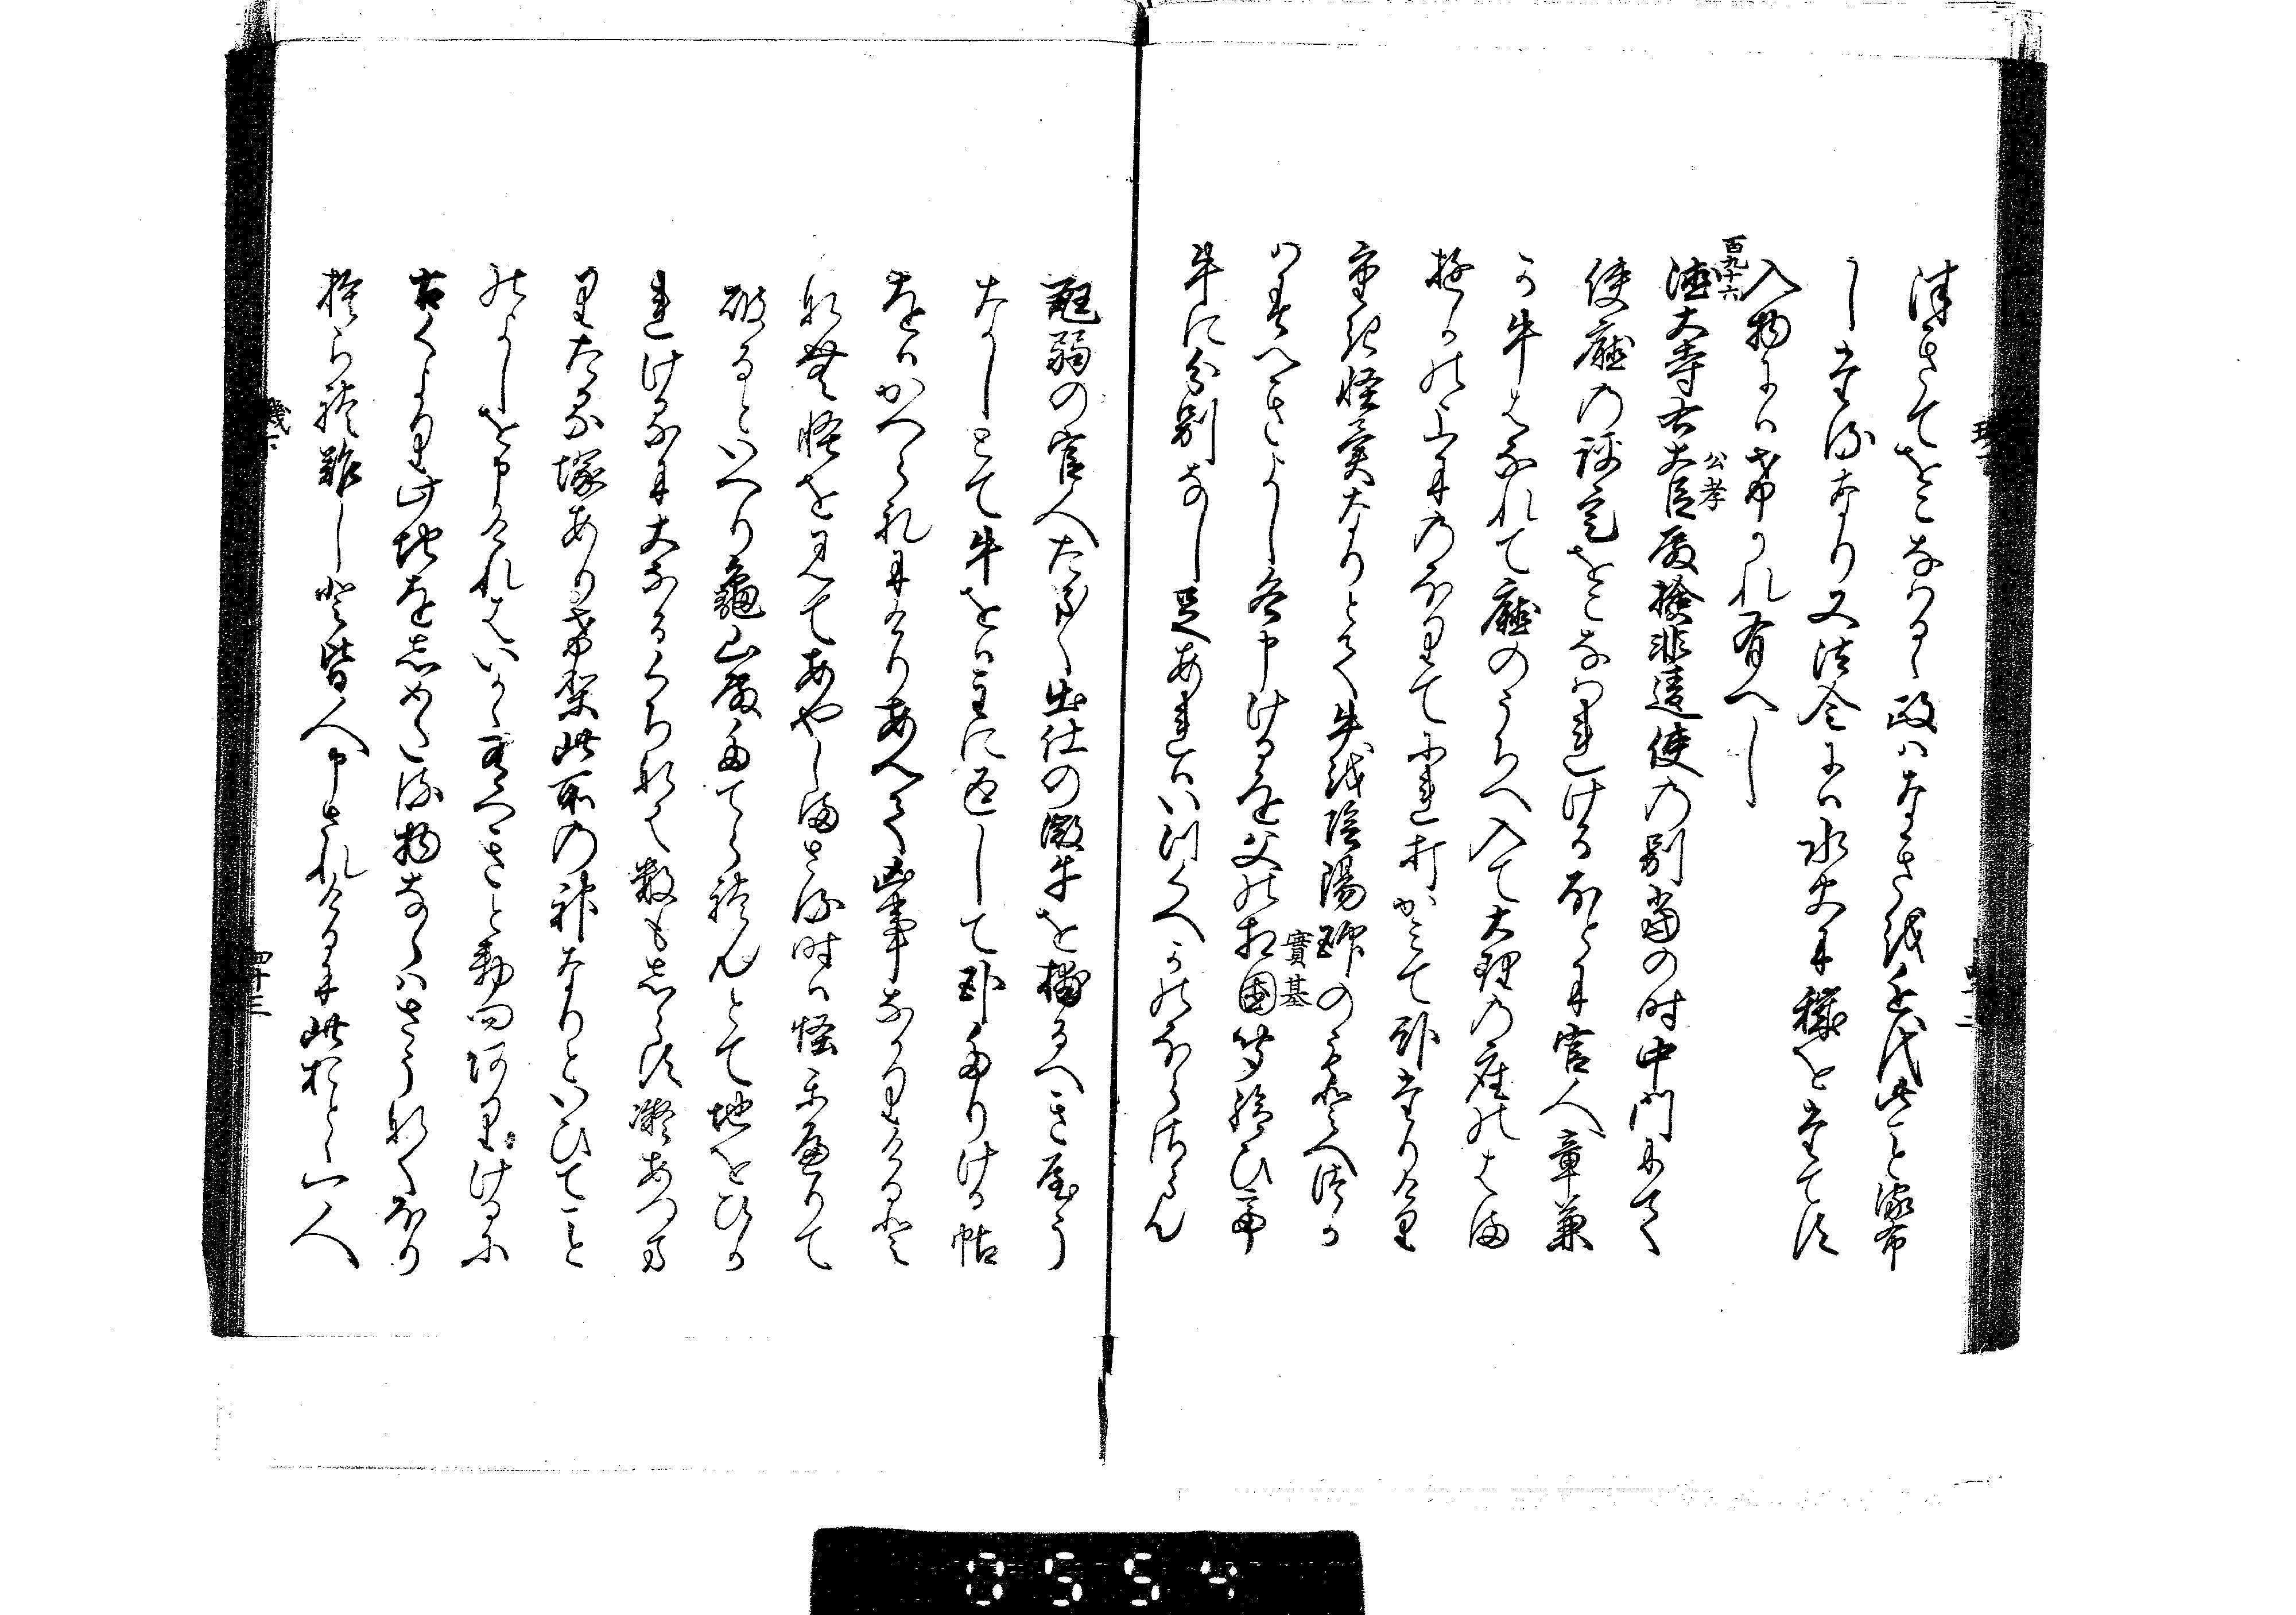 津きてをこなはるゝ政はなきを近代此こと流布
したるなり又法令には水火に穢をたてす
入物にはけかれ有へし
百九十六
徳大寺右大臣殿検非違使の別当の時中門にて
公孝
使庁の評定をこなはれけるほとに官人章兼
か牛はなれて庁のうちへ入て大理の座のはま
ゆかの上にのほりてにれ打かみて臥たりけり
重き怪異なりとて牛を陰陽師のもとへつか
はすへきよし各申けるを父の相国聞給ひて
實基
牛に分別なし足あれはいつくへかのほらさらん
尫弱の官人たま〱出仕の微牛をとらるへきやう
なしとて牛をは主に返して臥たりける帖
をはかへられにけりあへて凶事なかりけるとなん
怪を見てあやしまさる時は怪かへりて
破るといへり亀山殿たてられんとて地をひか
れけるに大なるくちなは数もしらす凝あつま
りたる塚ありけり此所の神なりといひてこと
のよしを申けれはいかゝ有へきと勅問ありけるに
古くより此地をしめたる物ならはさうなくほり
捨られ難しと皆人申されけるに此おとゝ一人
四十三